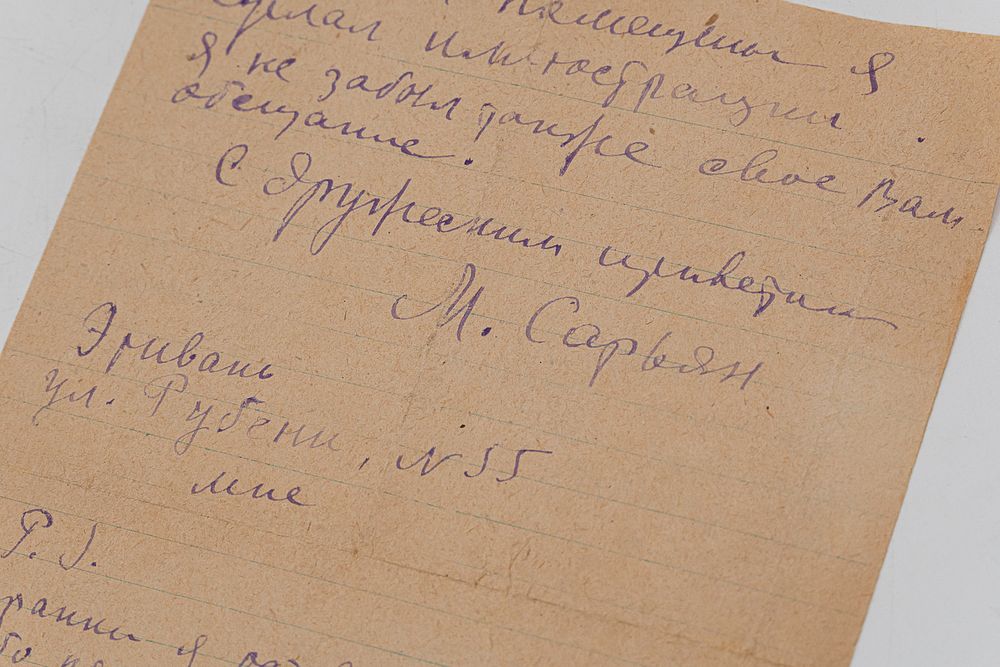 я
сделал иллюстрации.
Я не забыл также свое Вам
обещание.
С дружеским приветом
М. Сарьян
Эривань
ул. Рубени, N 55
мне
P. S.
я